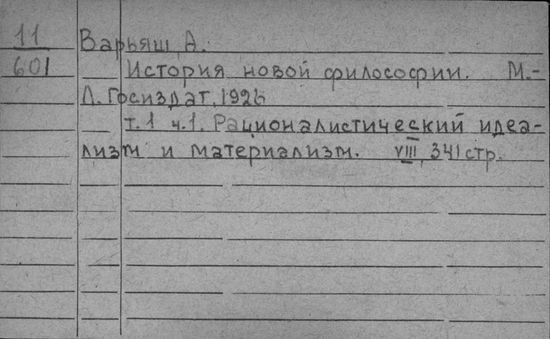 11 Варьяш, А.
601 История новой философии. М.-
Л. Госиздат, 1926
т.1 ч.1. Рационалистический идеа-
лизм и материализм. VIII, 341 стр.